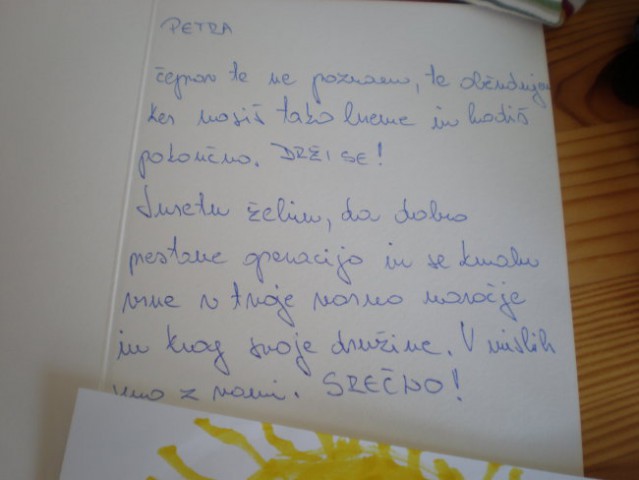 PETRA
čeprav te ne poznam, te občudujem
ker nosiš tako breme in hodiš
pokončno. DRŽI SE!
želim, da dobro
prestane operacijo in se kmalu
vrne v tvoje varno naročje
in krog svoje družine. V mislih
smo z vami. SREČNO!